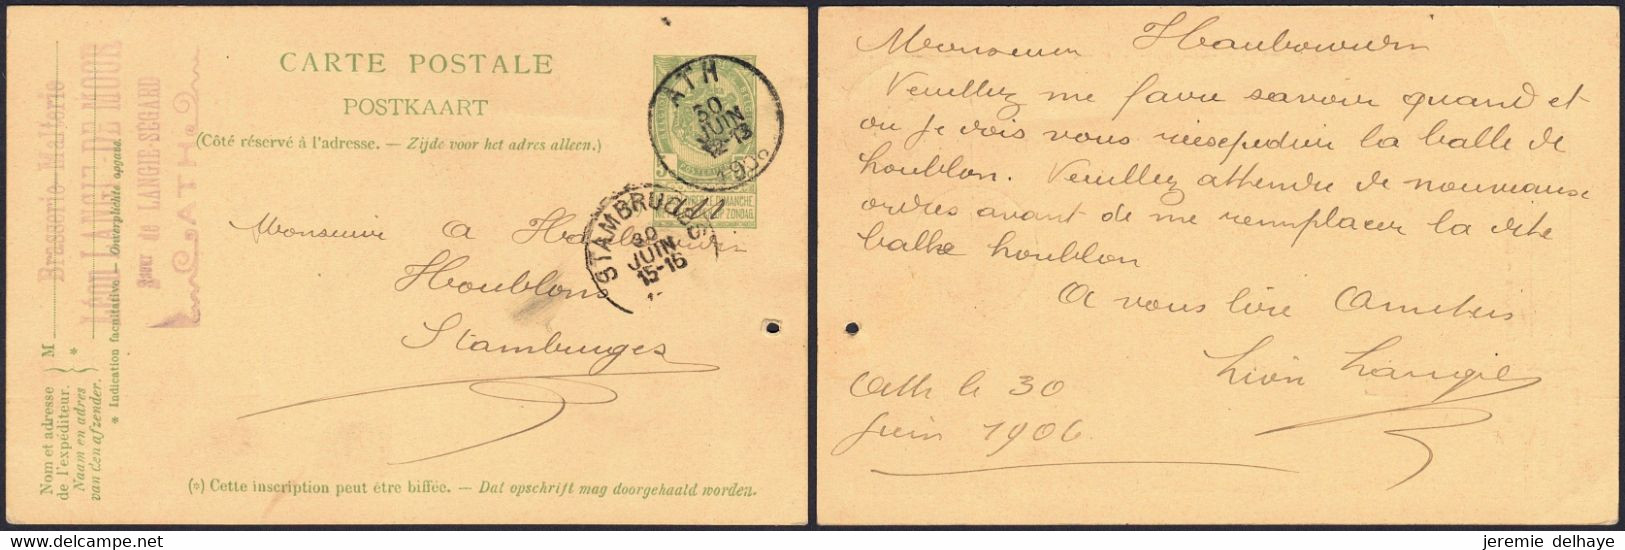 CARTE POSTALE
POSTKAART
(Côté réservé à l'adresse. — Zijde voor het adres alleen.)
ATH
30
JUIN
12-13
STAMBRUGES
30
JUIN
15-16
Monsieur A
Houblons
Stambruges
(*) Cette inscription peut être biffée. — Dat opschrift mag doorgehaald worden.
Nom et adresse
de l'expéditeur.
Naam en adres
van den afzender.
M
* Indication facultative — Onverplichte opgave.
Brasserie-Malterie
Léon LANGIE-DE MOOR
Succr de LANGIE-SEGARD
ATH
Monsieur
Veuillez me faire savoir quand et
ou je dois vous reexpedier la balle de
houblon. Veuillez attendre de nouveaux
ordres avant de me remplacer la dite
balle houblon
A vous lire Amitiés
Léon Langie
Ath le 30
Juin 1906
jeremie delhaye